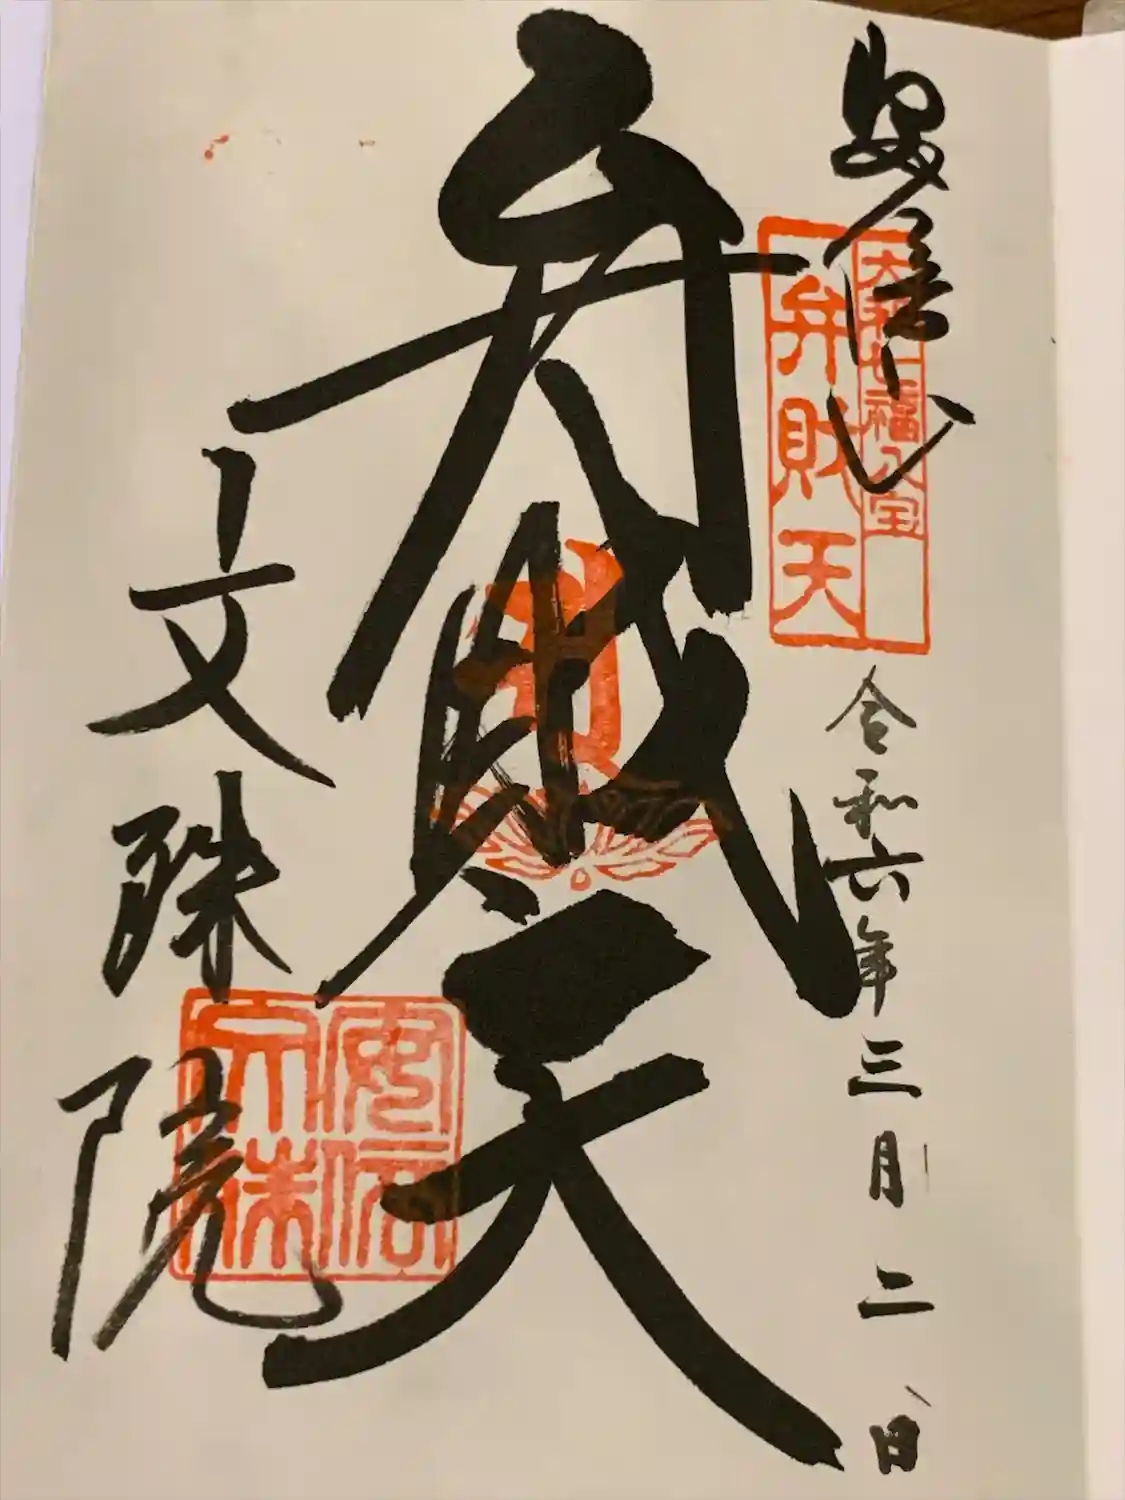 安倍山
大和七福八宝
弁財天
令和六年三月二日
弁財天
文殊院
安倍文殊